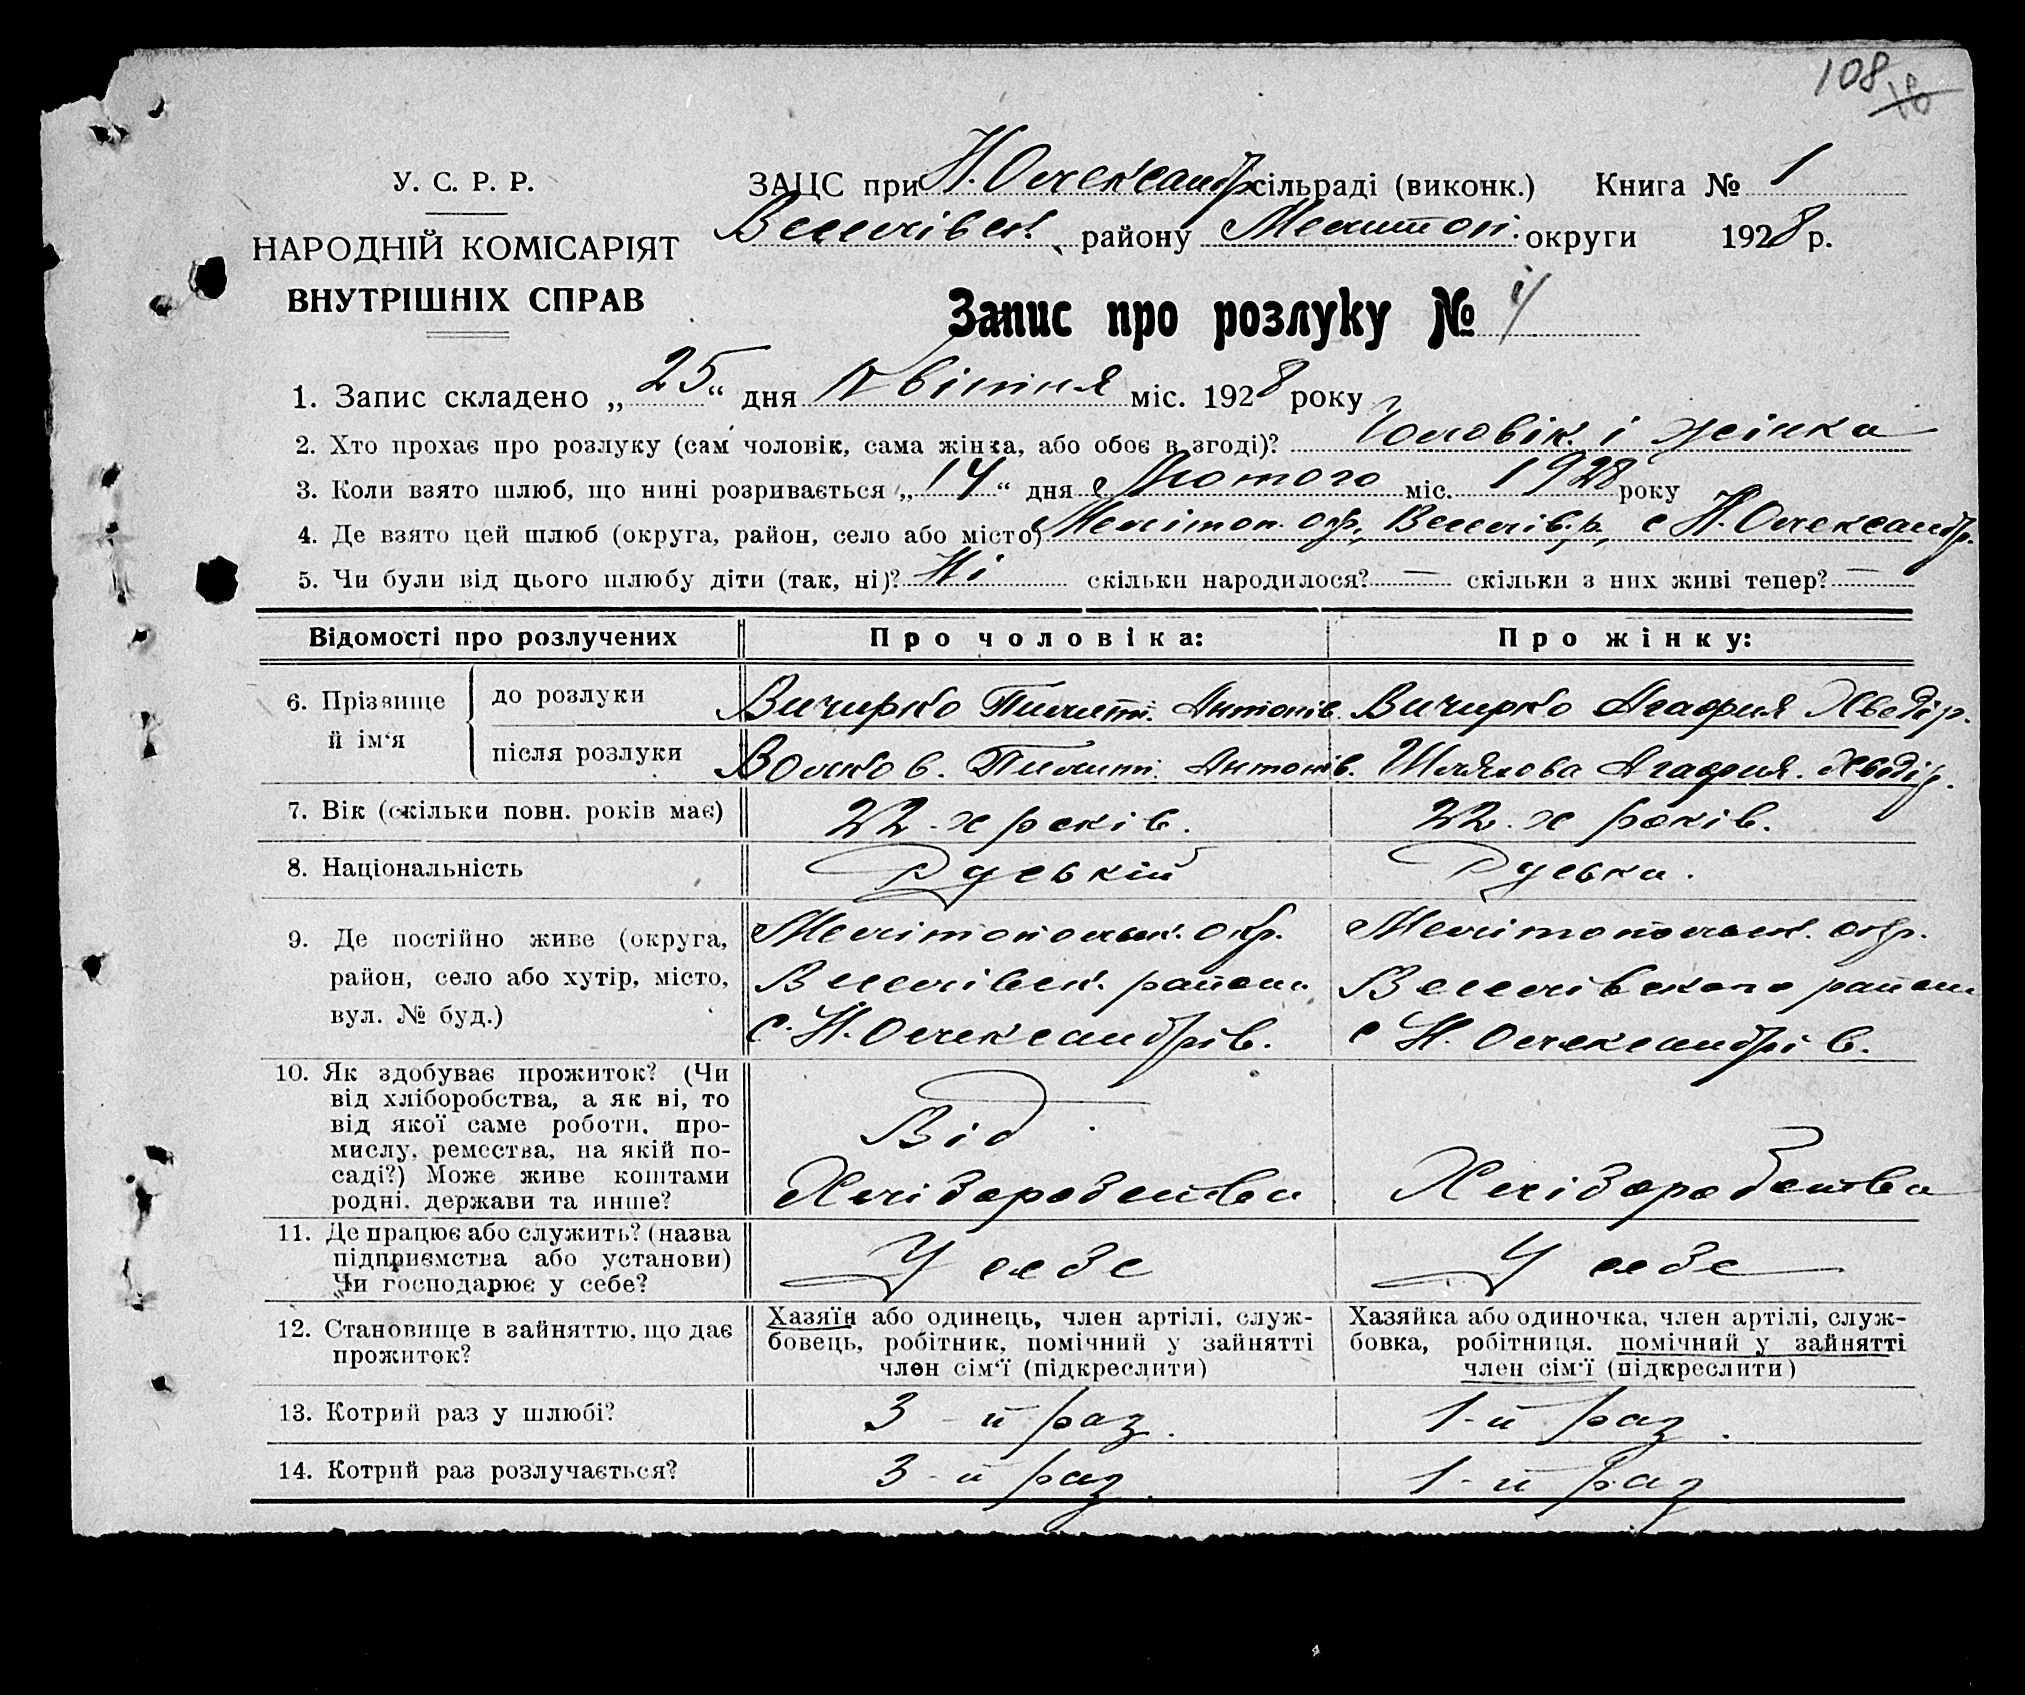 108
У. С. Р. Р.
НАРОДНІЙ КОМІСАРІЯТ
ВНУТРІШНІХ СПРАВ
ЗАЦС при Н. Олександр. сільраді (виконк.) Книга № 1
Веселівск. району Мелитоп. округи 1928 р.
Запис про розлуку № 4
1. Запис складено „25“ дня Квітня міс. 1928 року
2. Хто прохає про розлуку (сам чоловік, сама жінка, або обоє в згоді)? Чоловік і жінка
3. Коли взято шлюб, що нині розривається „14“ дня Лютого міс. 1928 року
4. Де взято цей шлюб (округа, район, село або місто) Мелітоп. окр., Веселів. р, с Н. Олександр.
5. Чи були від цього шлюбу діти (так, ні)? Ні скільки народилося? — скільки з них живі тепер? —
Відомості про розлучених Про чоловіка: Про жінку:
6. Прізвище й ім‘я
до розлуки Вичирко Пилип. Антонів. Вичирко Агафия Хведір.
після розлуки Пилип. Антонів. Агафия. Хведір.
7. Вік (скільки повн. років має) 22-х років. 22-х років.
8. Національність Руський Руська.
9. Де постійно живе (округа, район, село або хутір, місто, вул. № буд.)
Мелітопольск. окр. Мелітопольск. окр.
Веселівск. району Веселівского району
с. Н. Олександрів. с Н. Олександрів.
10. Як здобуває прожиток? (Чи
від хліборобства, а як ні, то
від якої саме роботи, про-
мислу, ремества, на якій по-
саді?) Може живе коштами
родні, держави та инше?
Від
Хліборобства Хліборобства
11. Де працює або служить? (назва
підприємства або установи)
Чи господарює у себе?
У себе У себе
12. Становище в зайняттю, що дає
прожиток?
Хазяїн або одинець, член артілі, служ-
бовець, робітник, помічний у зайнятті
член сім‘ї (підкреслити)
Хазяйка або одиночка, член артілі, служ-
бовка, робітниця, помічний у зайнятті
член сім‘ї (підкреслити)
13. Котрий раз у шлюбі? 3-й раз. 1-й раз.
14. Котрий раз розлучається? 3-й раз. 1-й раз